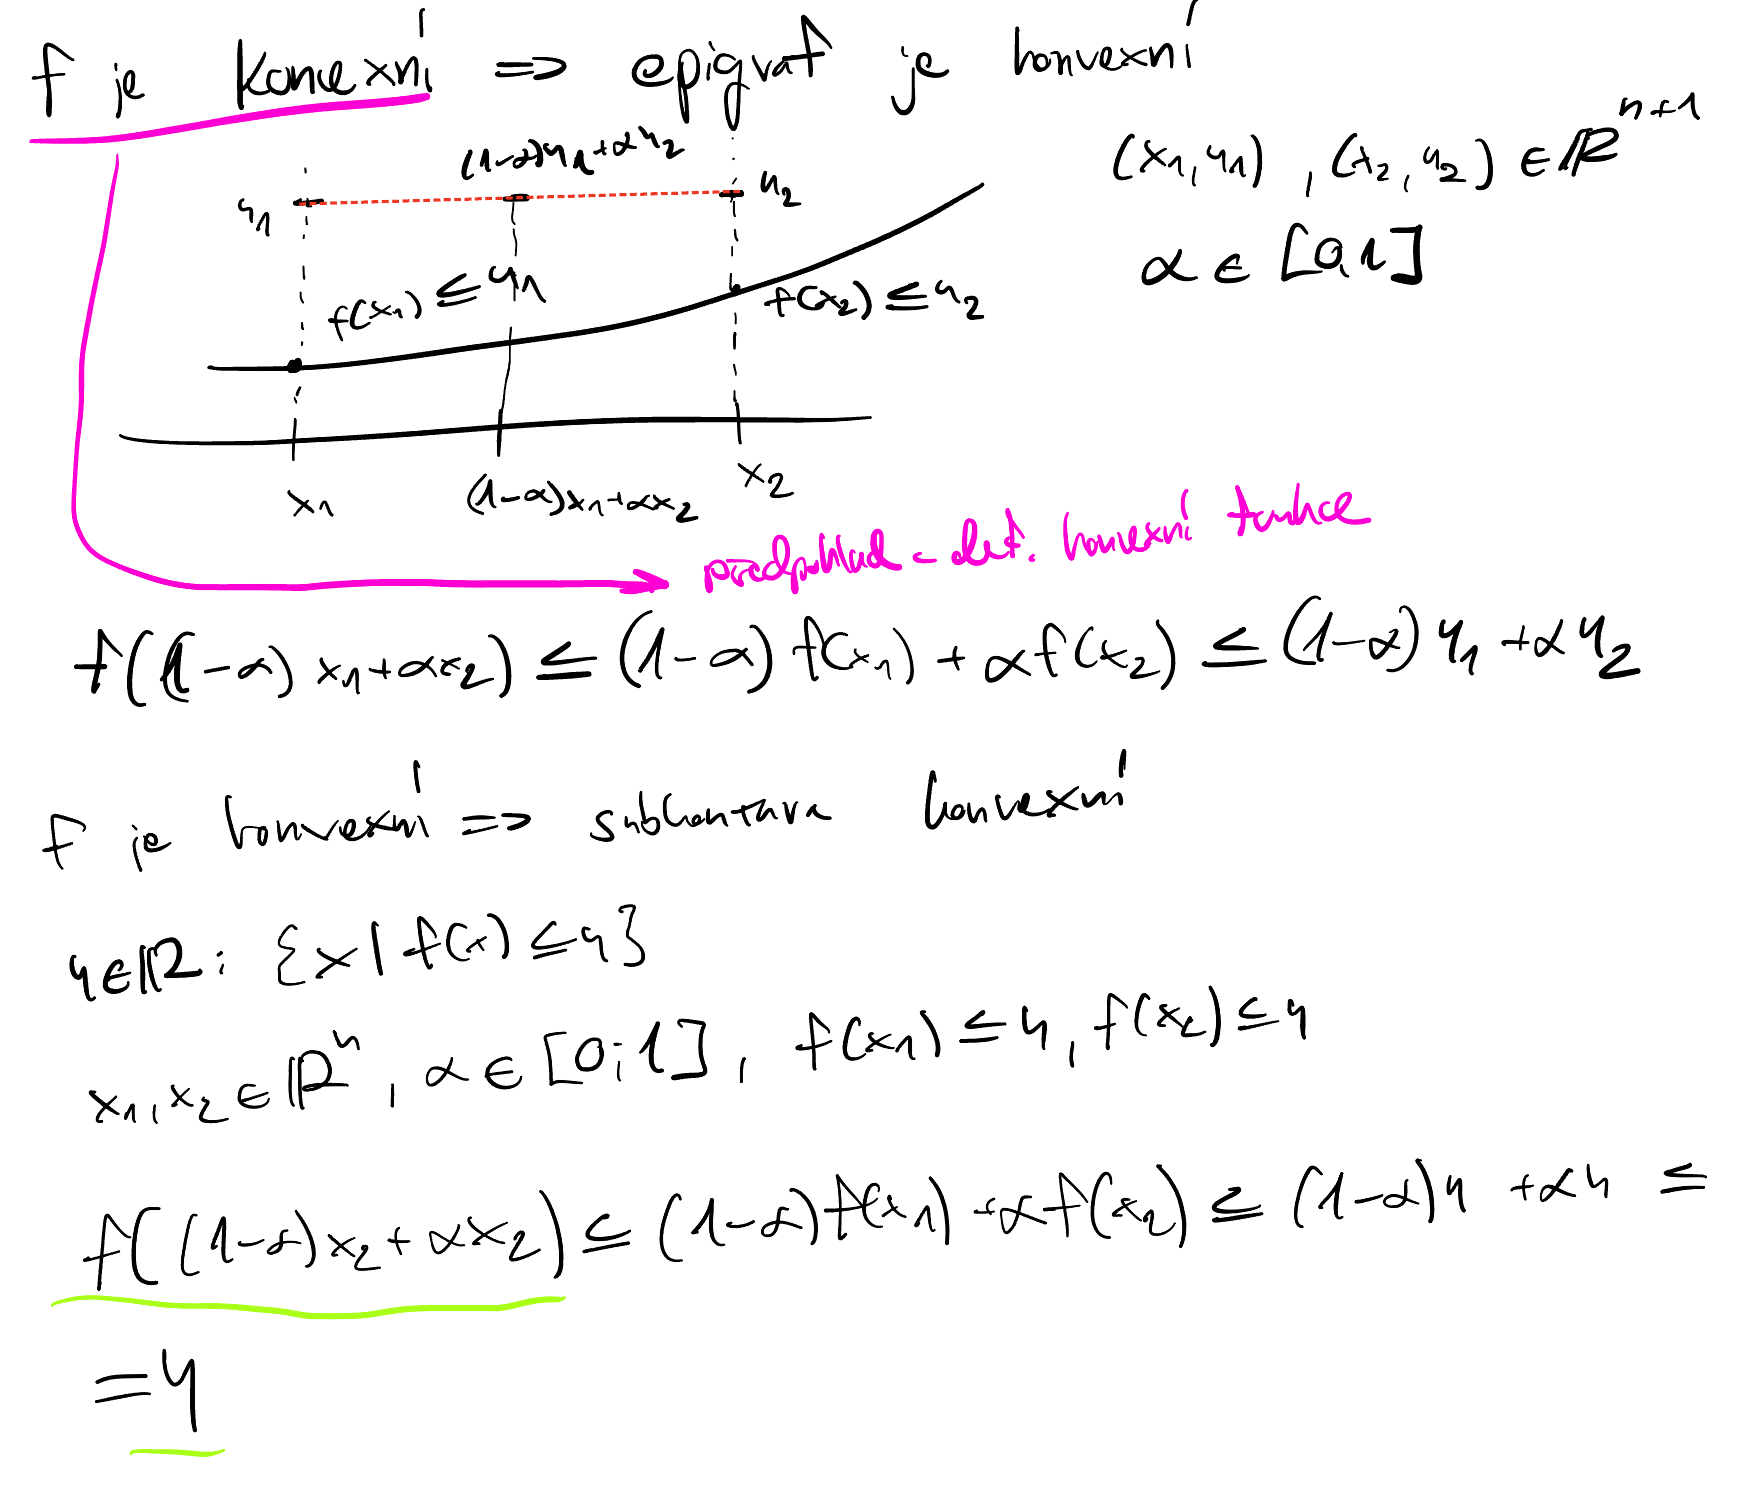 f je konvexní => epigraf je konvexní
(x₁,y₁) , (x₂,y₂) ∈ ℝⁿ⁺¹
α ∈ [0,1]
(1-α)y₁+αy₂
y₁
y₂
f(x₁) ≤ y₁
f(x₂) ≤ y₂
x₁
(1-α)x₁+αx₂
x₂
předpoklad - def. konvexní funkce
f((1-α) x₁+αx₂) ≤ (1-α) f(x₁) + αf(x₂) ≤ (1-α) y₁ + αy₂
f je konvexní => subkontura konvexní
y∈ℝ: {x | f(x) ≤ y}
x₁, x₂ ∈ ℝⁿ, α ∈ [0;1], f(x₁) ≤ y, f(x₂) ≤ y
f((1-α)x₂ + αx₂) ≤ (1-α)f(x₁) + αf(x₂) ≤ (1-α)y + αy ≤
= y